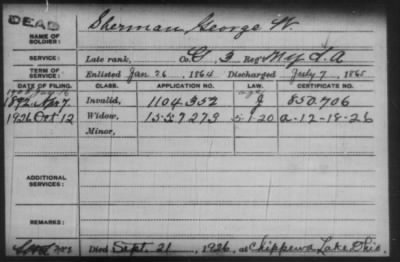 DEAD
NAME OF SOLDIER: Sherman, George W.
SERVICE: Late rank, Co. G 3 Reg't My L. A
TERM OF SERVICE: Enlisted Jan. 26, 1864 Discharged July 7, 1865
DATE OF FILING. CLASS. APPLICATION NO. LAW. CERTIFICATE NO.
1892 Invalid, 1104,352 J 850,706
1926 Oct 12 Widow, 1557279 5-1-20 a-12-18-26
Minor,
ADDITIONAL SERVICES:
REMARKS:
Died Sept. 21, 1926, at Chippewa Lake Ohio.